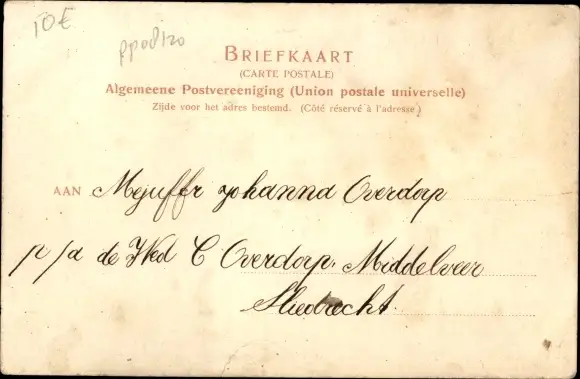 10€
ppo8120
BRIEFKAART
(CARTE POSTALE)
Algemeene Postvereeniging (Union postale universelle)
Zijde voor het adres bestemd. (Côté réservé à l'adresse)
AAN Mejuffr Johanna Overdorp
p/a de Wed C Overdorp. Middelveer
Sliedrecht.